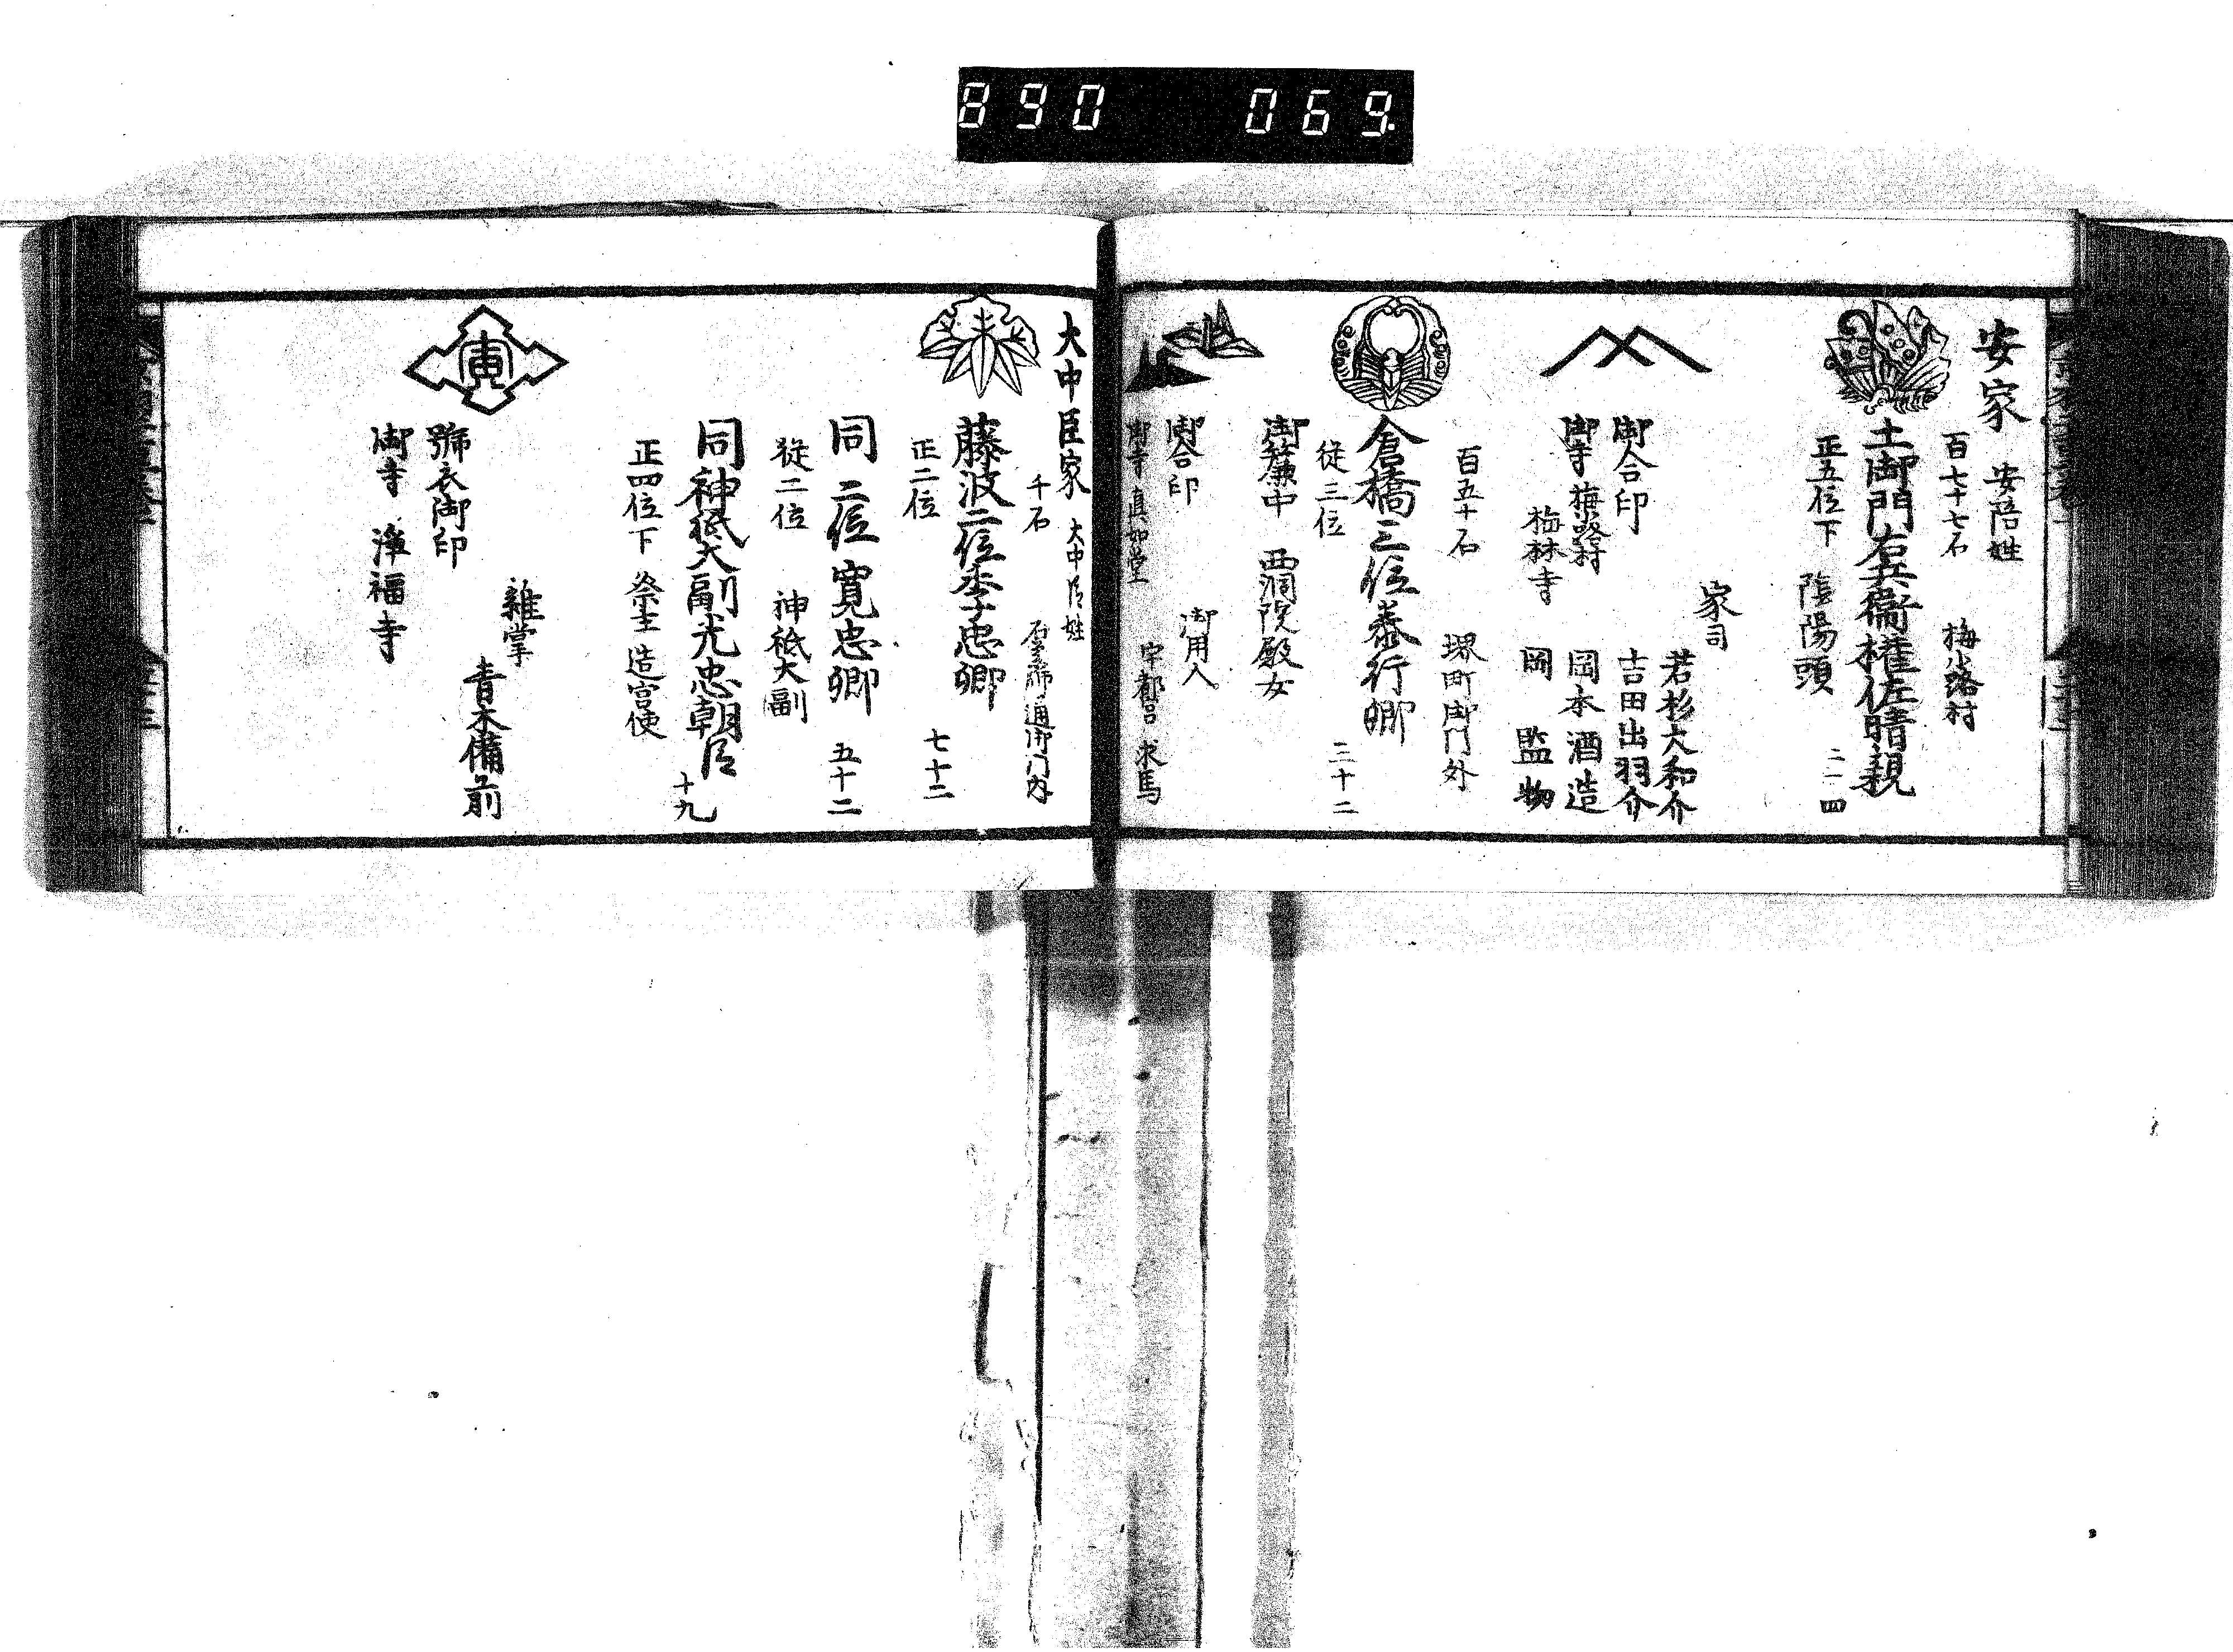 890 069
安家 安倍姓
百七十七石 梅小路村
土御門右兵衛権佐晴親
正五位下 陰陽頭 二一四
家司
若杉大和介
吉田出羽介
岡本酒造
岡 監物
御合印
御寺 梅小路村
梅林寺
百五十石 堺町御門外
倉橋三位泰行卿
従三位 三十二
御簾中 西洞院殿女
御合印 御用人
御寺 真如堂 宇都宮求馬
大中臣家 大中臣姓
千石 石薬師通御門内
藤波二位季忠卿
正二位 七十二
同二位寛忠卿
従二位 神祇大副 五十二
同神祇大副光忠朝臣
正四位下 祭主 造宮使 十九
寅
雑掌
青木備前
號衣御印
御寺 浄福寺